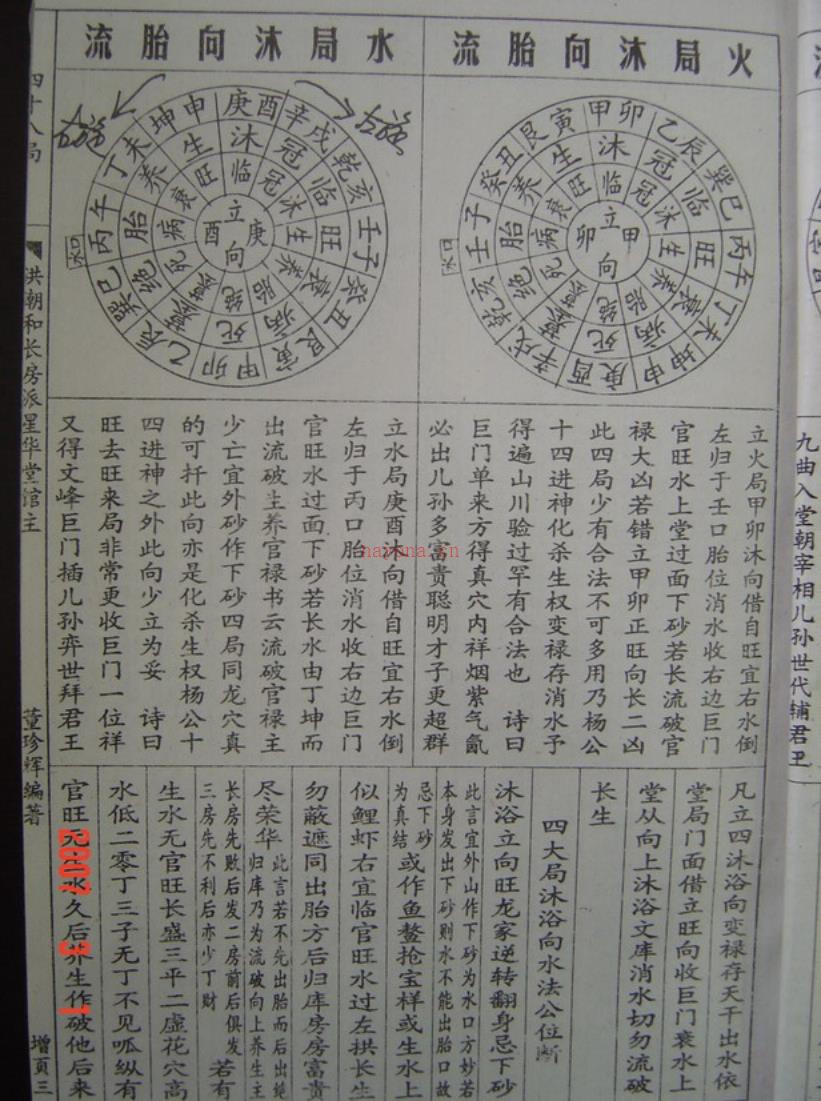 火局沐向胎流
水局沐向胎流
甲卯
乙辰
巽巳
丙午
丁未
坤申
庚酉
辛戌
乾亥
壬子
癸丑
艮寅
沐
冠
临
旺
衰
病
死
墓
绝
胎
养
生
临
冠
沐
生
养
胎
绝
墓
死
病
衰
旺
立甲向卯
水口
庚酉
辛戌
乾亥
壬子
癸丑
艮寅
甲卯
乙辰
巽巳
丙午
丁未
坤申
沐
冠
临
旺
衰
病
死
墓
绝
胎
养
生
临
冠
沐
生
养
胎
绝
墓
死
病
衰
旺
立庚向酉
水口
立火局甲卯沐向借自旺宜右水倒
左归于壬口胎位消水收右边巨门
官旺水上堂过面下砂若长流破官
禄大凶若错立甲卯正旺向长二凶
此四局少有合法不可多用乃杨公
十四进神化杀生权变禄存消水予
得遍山川验过罕有合法也 诗曰
巨门单来方得真穴内祥烟紫气氤
必出儿孙多富贵聪明才子更超群
立水局庚酉沐向借自旺宜右水倒
左归于丙口胎位消水收右边巨门
官旺水过面下砂若长水由丁坤而
出流破生养官禄书云流破官禄主
少亡宜外砂作下砂四局同龙穴真
的可扦此向亦是化杀生权杨公十
四进神之外此向少立为妥 诗曰
旺去旺来局非常更收巨门一位祥
又得文峰巨门插儿孙弈世拜君王
凡立四沐浴向变禄存天干出水依
堂局门面借立旺向收巨门衰水上
堂从向上沐浴文库消水切勿流破
长生
四大局沐浴向水法公位断
沐浴立向旺龙家逆转翻身忌下砂
此言宜外山作下砂为水口方妙若
本身发出下砂则水不能出胎口故
忌下砂
为真结
或作鱼鳌抢宝样或生水上
似鲤虾右宜临官旺水过左拱长生
勿蔽遮同出胎方后归库房房富贵
尽荣华
此言若不先出胎而后出绝
归库乃为流破向上养生主
长房先败后发二房前后俱发
三房先不利后亦少丁财
若有
生水无官旺长盛三平二虚花穴高
水低二零丁三子无丁不见呱纵有
官旺无 水久后养生作破他后来
四十八局
洪朝和长房派星华堂馆主
董珍辉编著
增页三
九曲入堂朝宰相儿孙世代辅君王
nayona.cn
2007 3 1